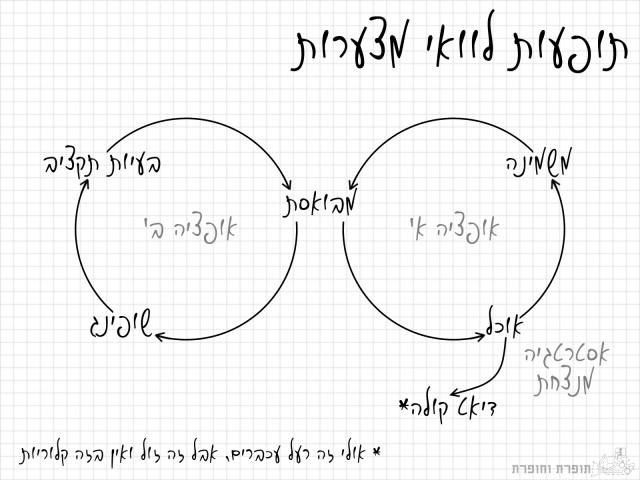 תופעות לוואי מצערות
בעיות תקציב
משמינה
מבואסת
אופציה ב'
אופציה א'
שופינג
אוכל
אסטרטגיה
מנצחת
דיאט קולה*
* אולי זה רעל עכברים, אבל זה זול ואין בזה קלוריות
תופרת וחופרת